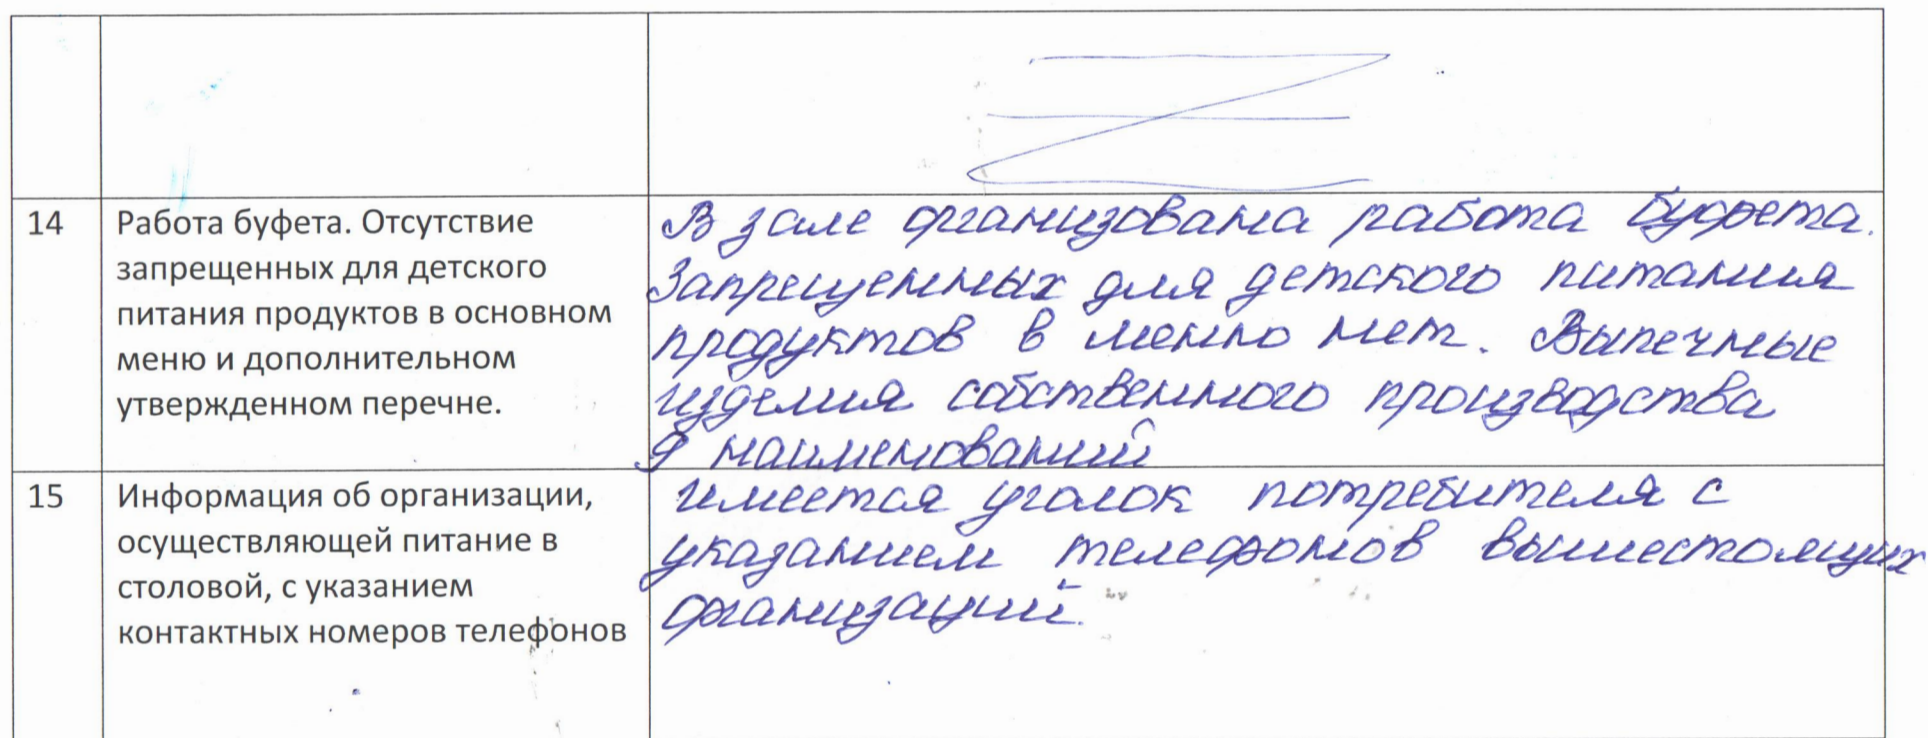 14
Работа буфета. Отсутствие
запрещенных для детского
питания продуктов в основном
меню и дополнительном
утвержденном перечне.
В зале организована работа буфета.
Запрещенных для детского питания
продуктов в меню нет. Выпечные
изделия собственного производства
9 наименований
15
Информация об организации,
осуществляющей питание в
столовой, с указанием
контактных номеров телефонов
имеется уголок потребителя с
указанием телефонов вышестоящих
организаций.